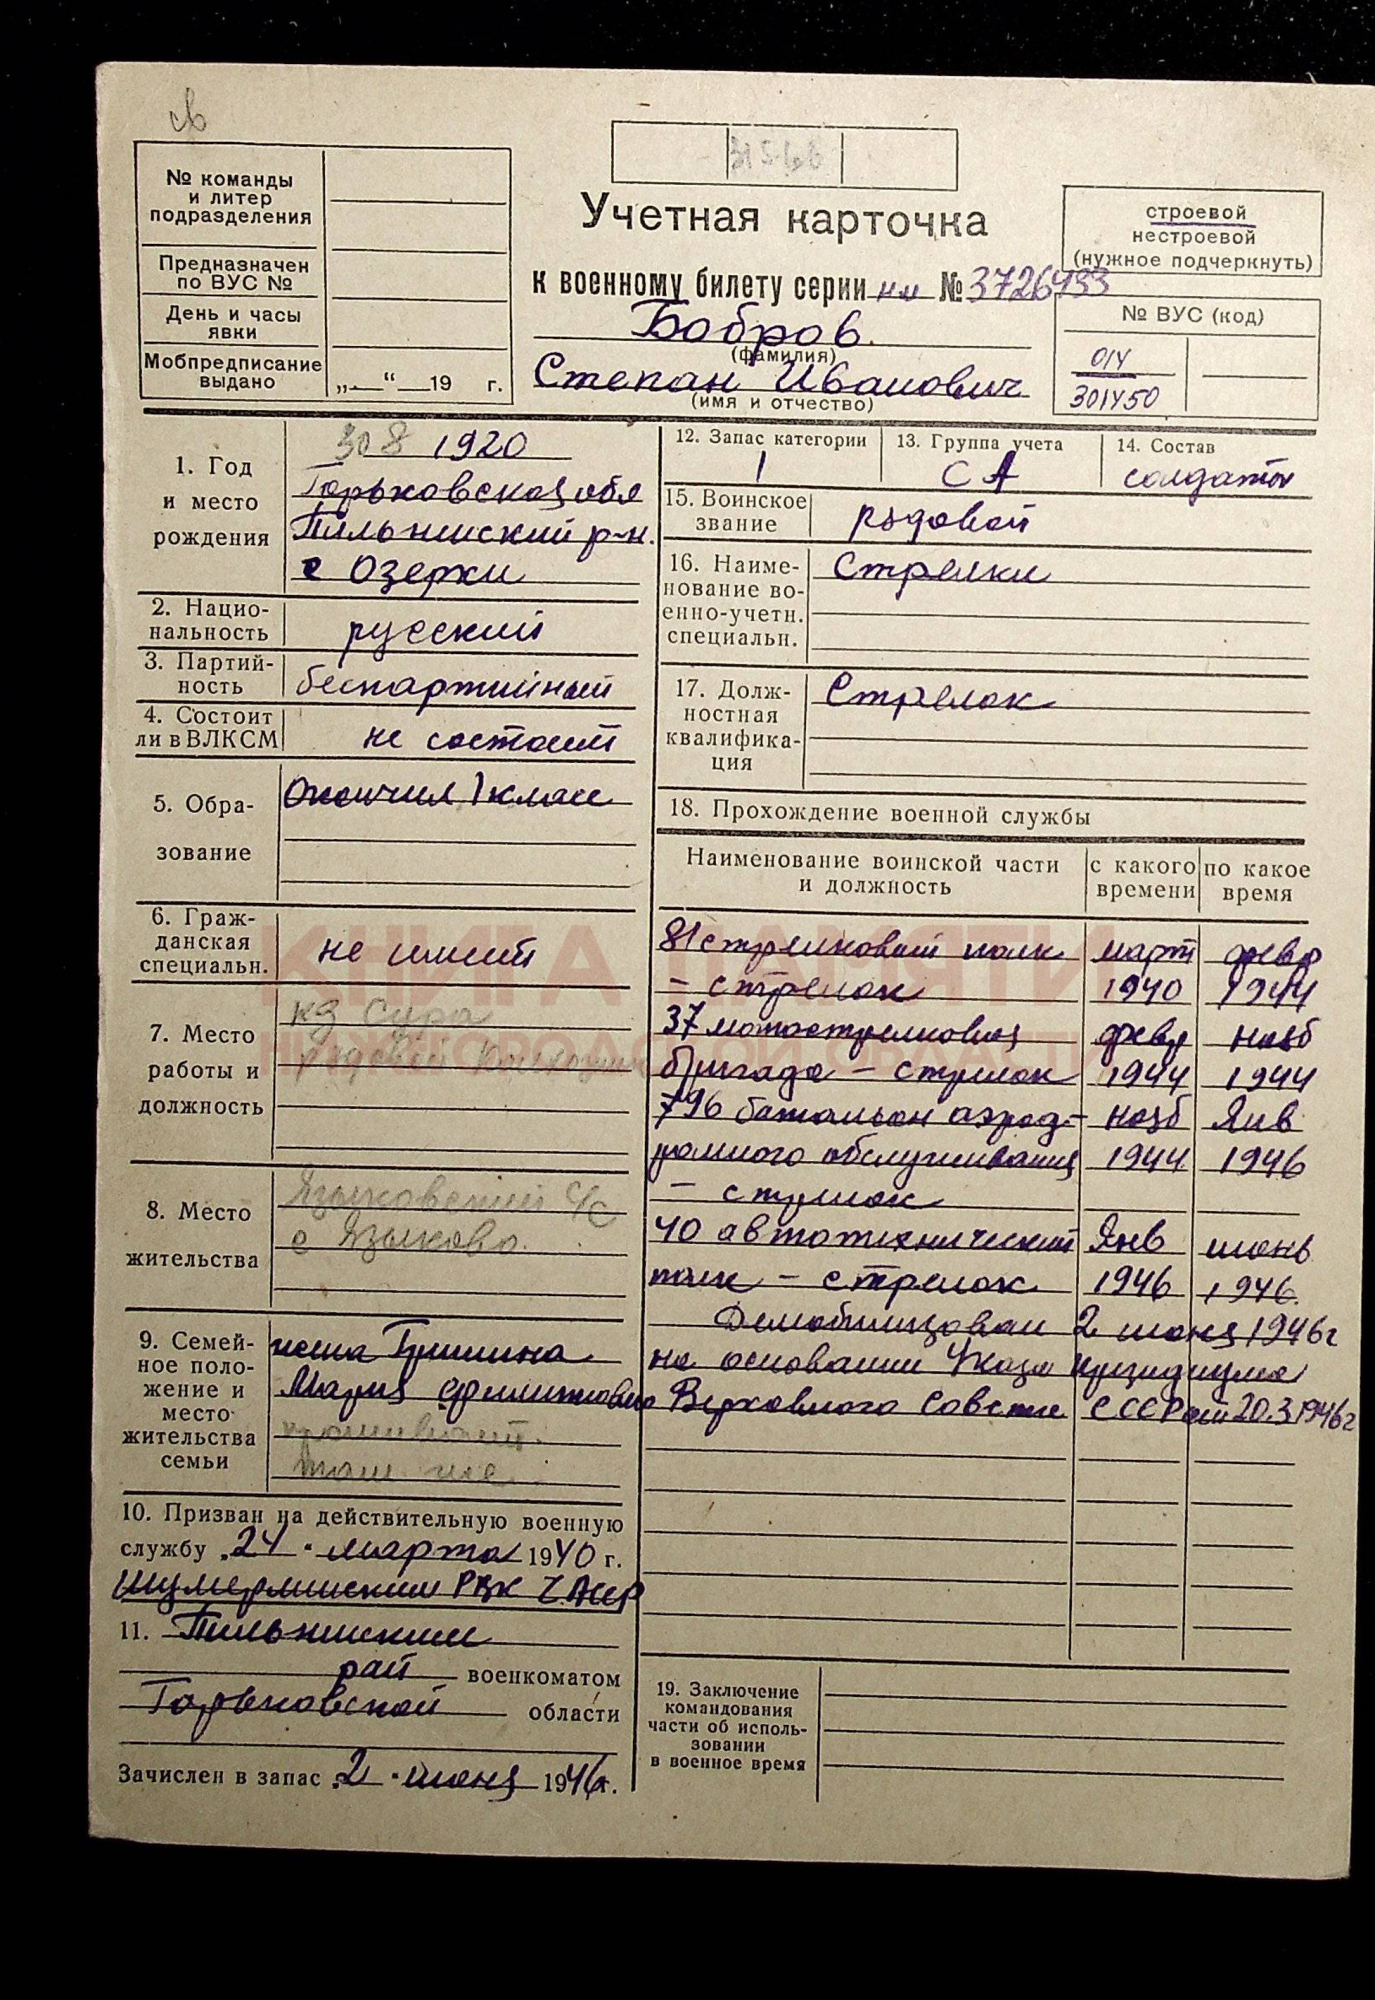 № команды
и литер
подразделения
Предназначен
по ВУС №
День и часы
явки
Мобпредписание
выдано
„ “ 19 г.
Учетная карточка
к военному билету серии нл № 3726433
Бобров
(фамилия)
Степан Иванович
(имя и отчество)
строевой
нестроевой
(нужное подчеркнуть)
№ ВУС (код)
014
301450
1. Год
и место
рождения
30 8 1920
Горьковская обл
Пильнинский р-н.
с Озерки
2. Нацио-
нальность
русский
3. Партий-
ность
беспартийный
4. Состоит
ли в ВЛКСМ
не состоит
5. Обра-
зование
Окончил 1 класс
6. Граж-
данская
специальн.
не имеет
7. Место
работы и
должность
кз Сура
рядовой колхозник
8. Место
жительства
Языковский с/с
с Языково.
9. Семей-
ное поло-
жение и
место
жительства
семьи
жена Гришина
Мария Филипповна
проживает
там же
10. Призван на действительную военную
службу „24“ марта 1940 г.
Шумерлинским РВК ЧАССР
11. Пильнинским
рай военкоматом
Горьковской области
Зачислен в запас „2“ июня 1946 г.
12. Запас категории
1
13. Группа учета
СА
14. Состав
солдаты
15. Воинское
звание
рядовой
16. Наиме-
нование во-
енно-учетн.
специальн.
Стрелки
17. Долж-
ностная
квалифика-
ция
Стрелок
18. Прохождение военной службы
Наименование воинской части
и должность
с какого
времени
по какое
время
81 стрелковый полк март февр
– стрелок 1940 1944
37 мотострелковая февр нояб
бригада – стрелок 1944 1944
796 батальон аэрод- нояб Янв
ромного обслуживания 1944 1946
– стрелок
40 автотехнический Янв июнь
полк – стрелок 1946 1946.
Демобилизован 2 июня 1946г
на основании Указа Президиума
Верховного Совета СССР от 20.3 1946г
19. Заключение
командования
части об исполь-
зовании
в военное время
КНИГА ПАМЯТИ
НИЖЕГОРОДСКОЙ ОБЛАСТИ